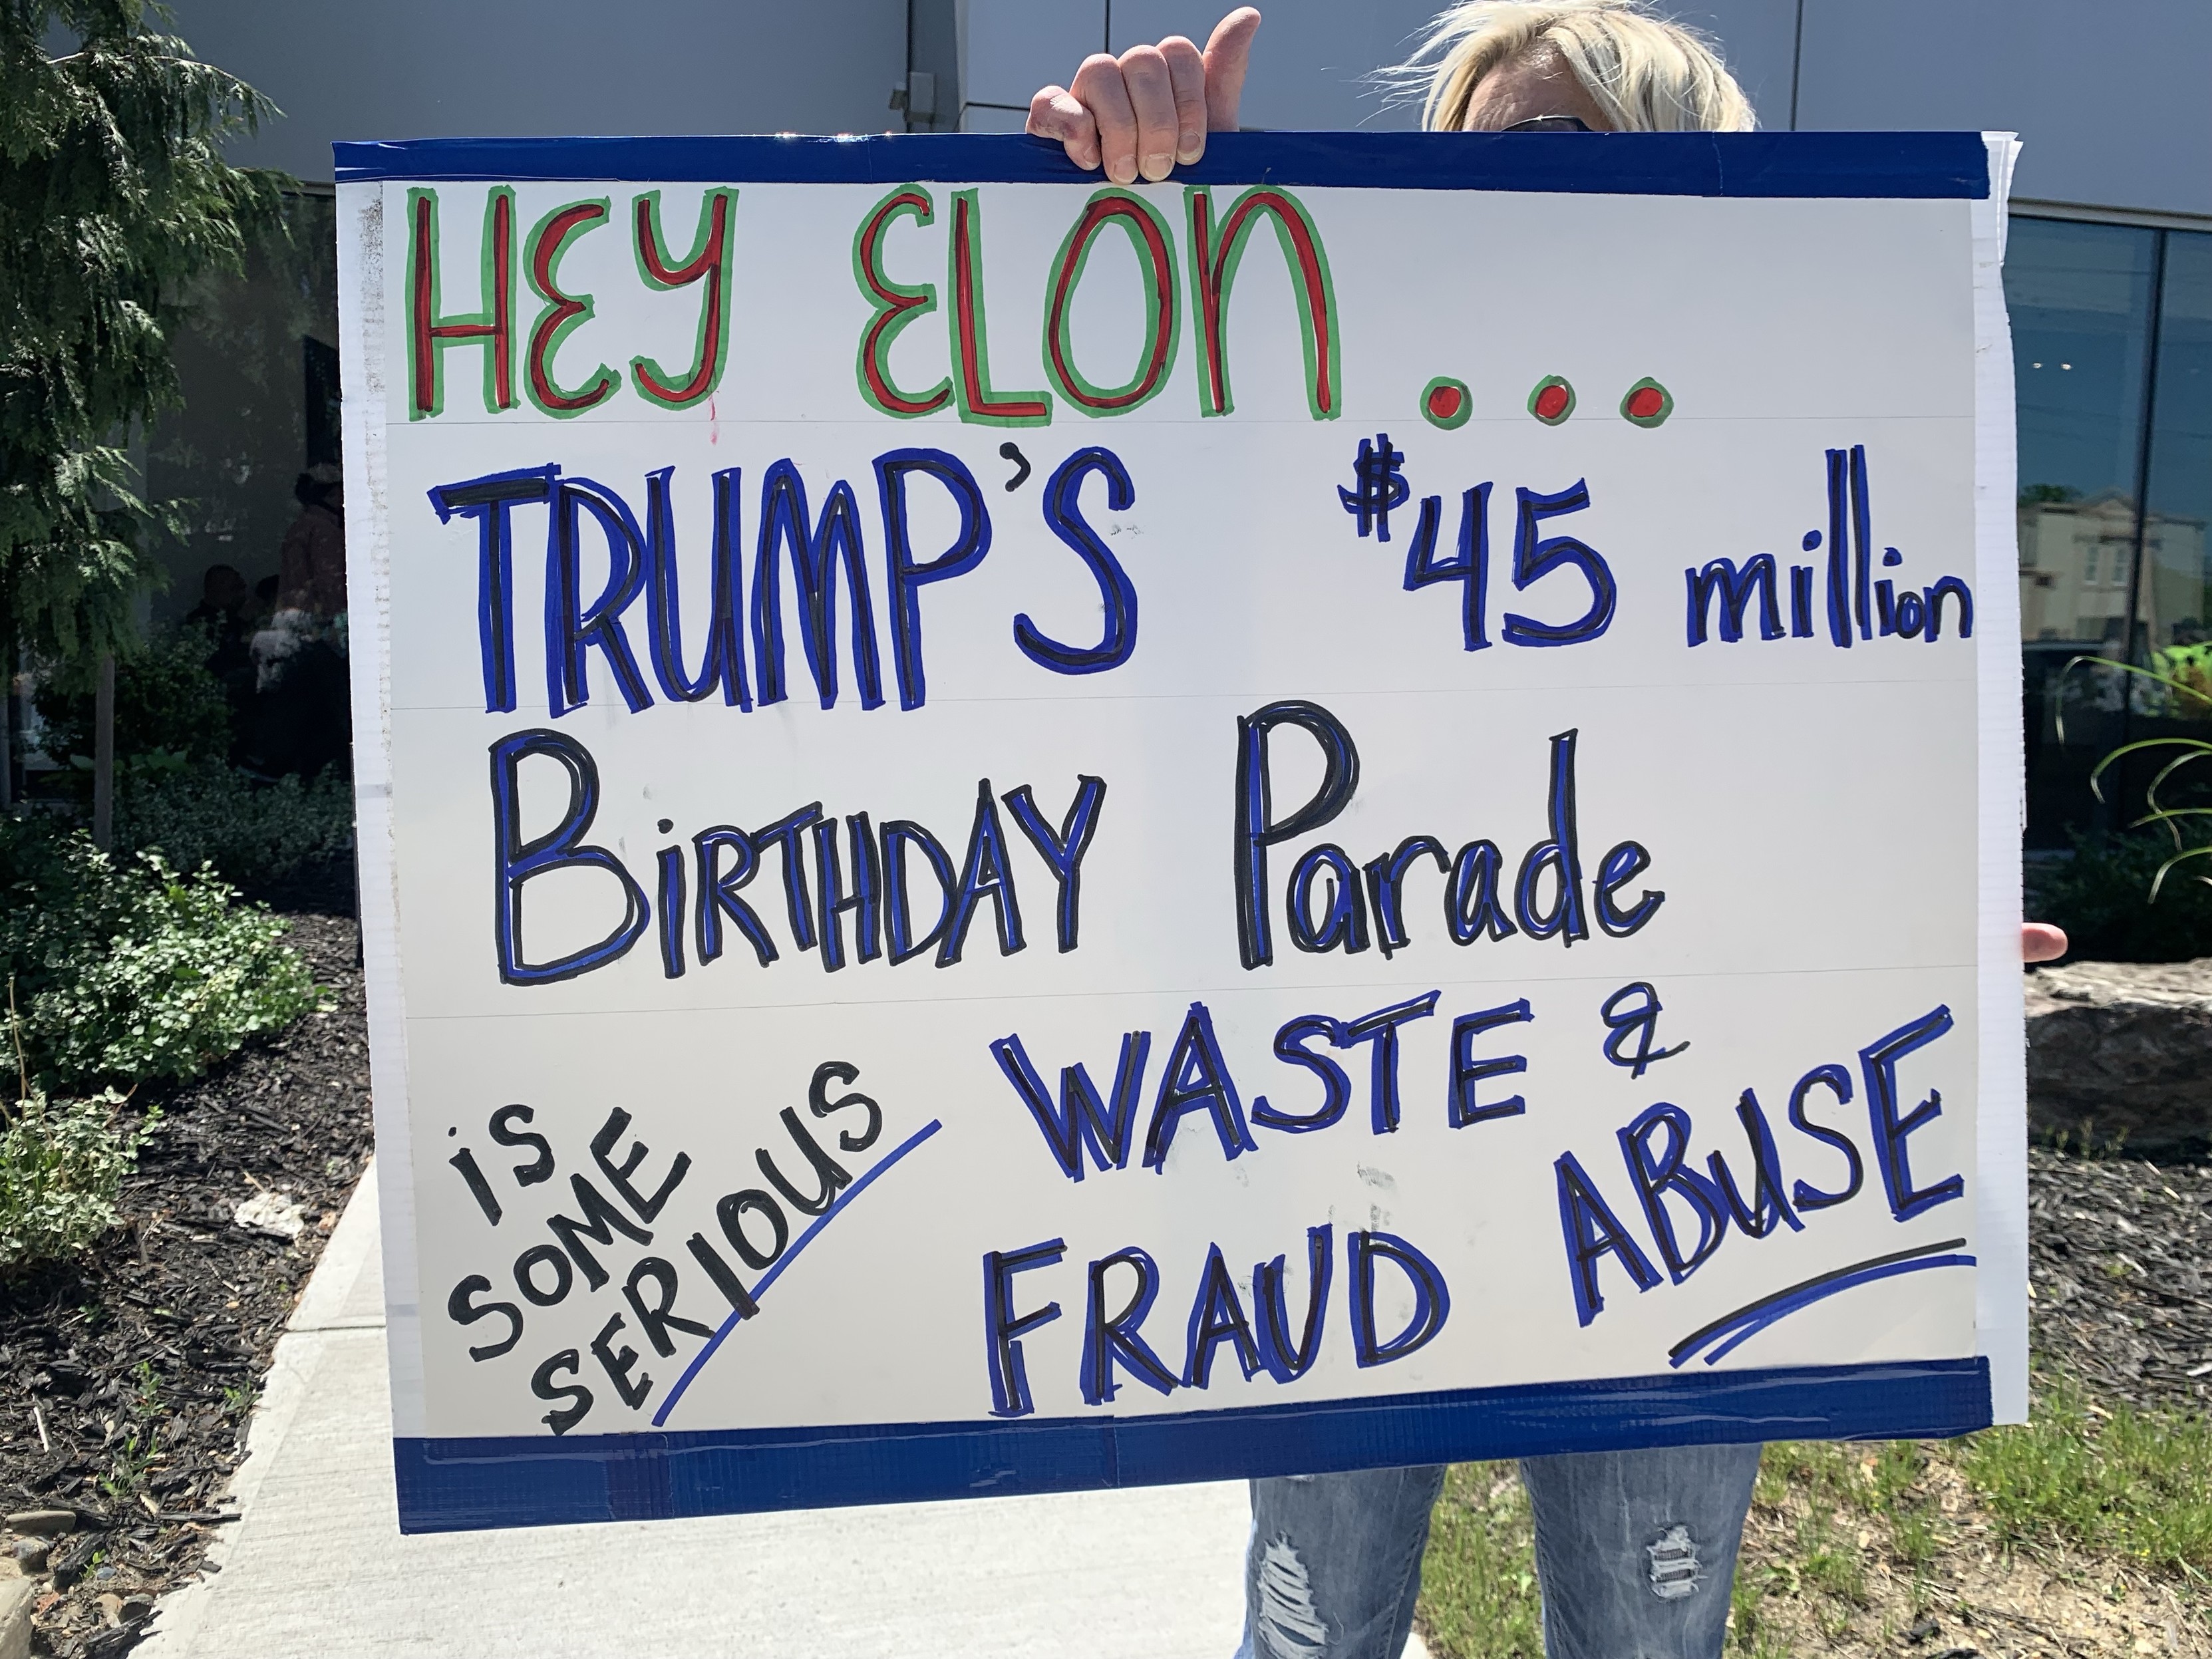 HEY ELON...
TRUMP'S $45 million
BiRTHDAY Parade
is
SOME
SERIOUS
WASTE &
FRAUD ABUSE